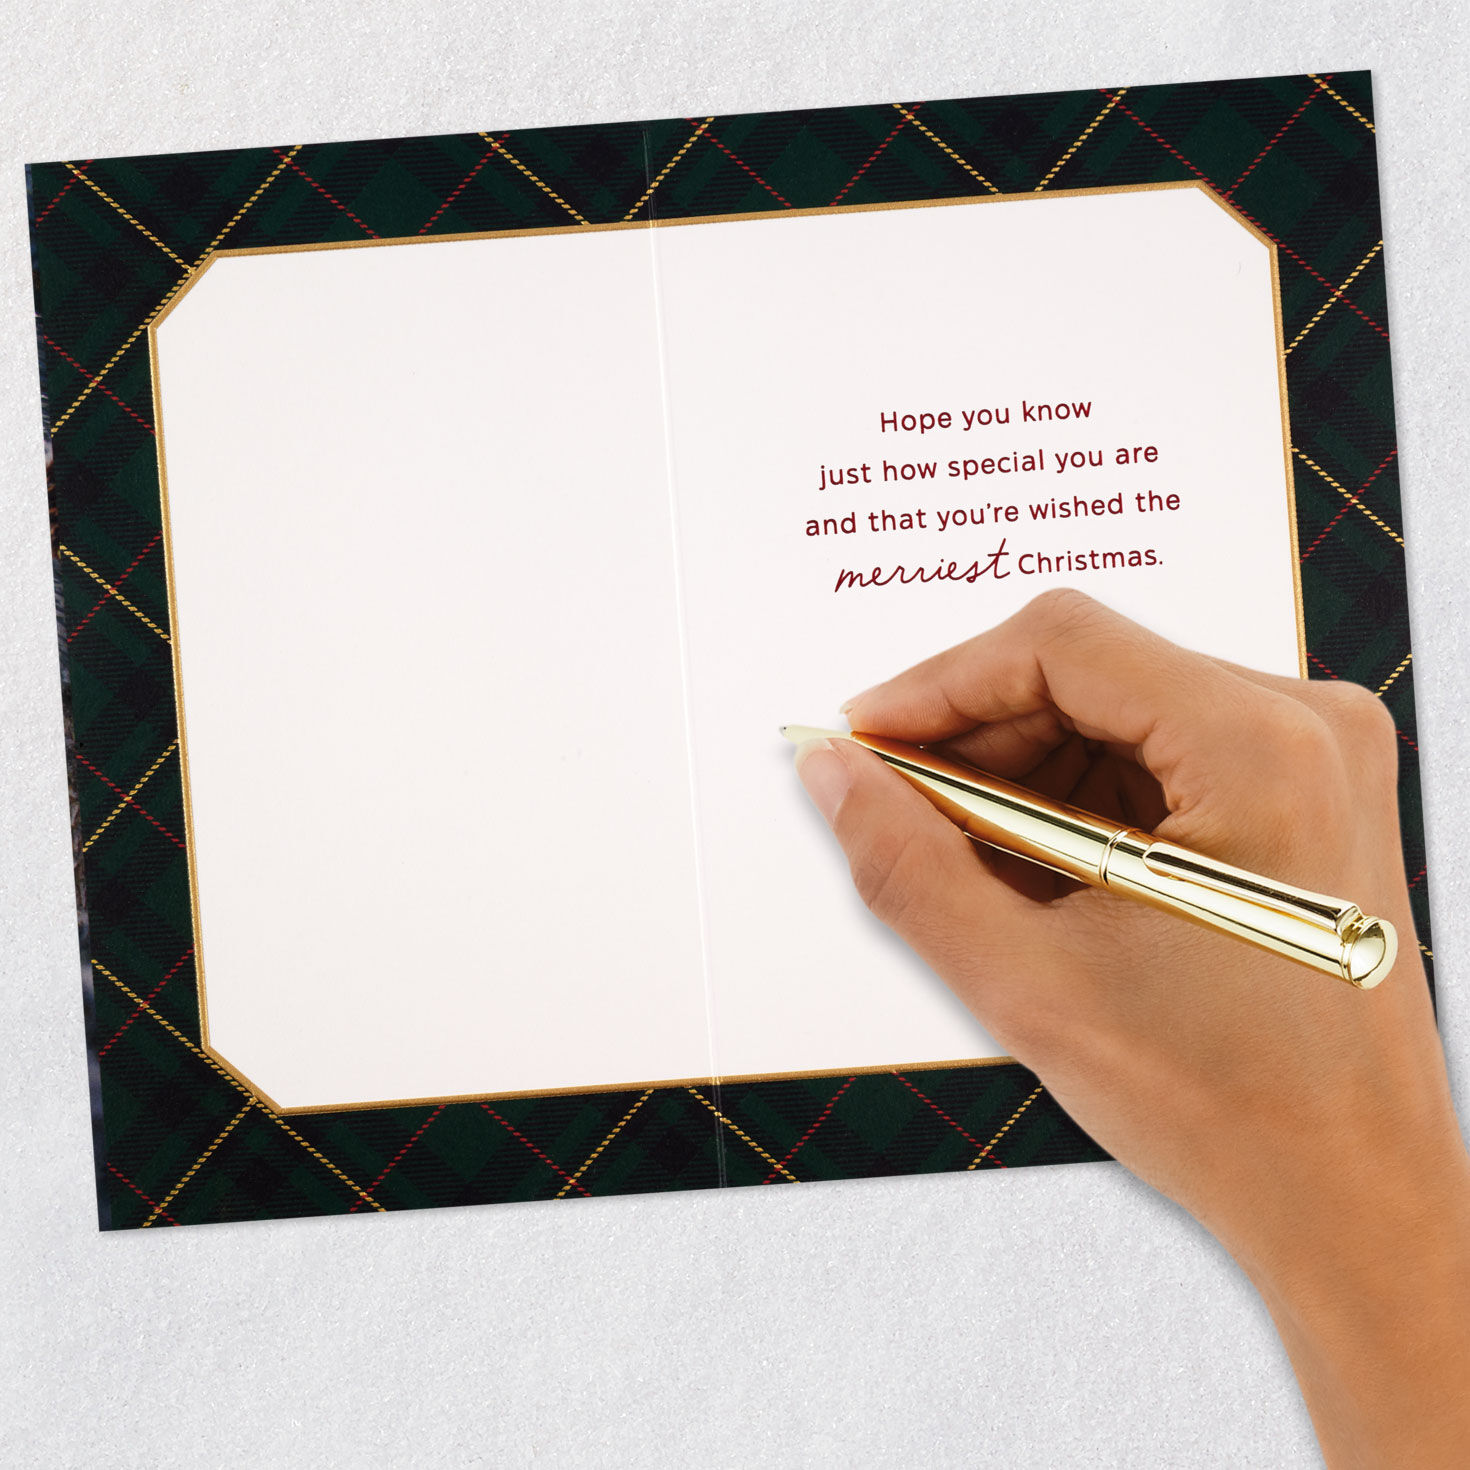 Hope you know
just how special you are
and that you're wished the
merriest Christmas.